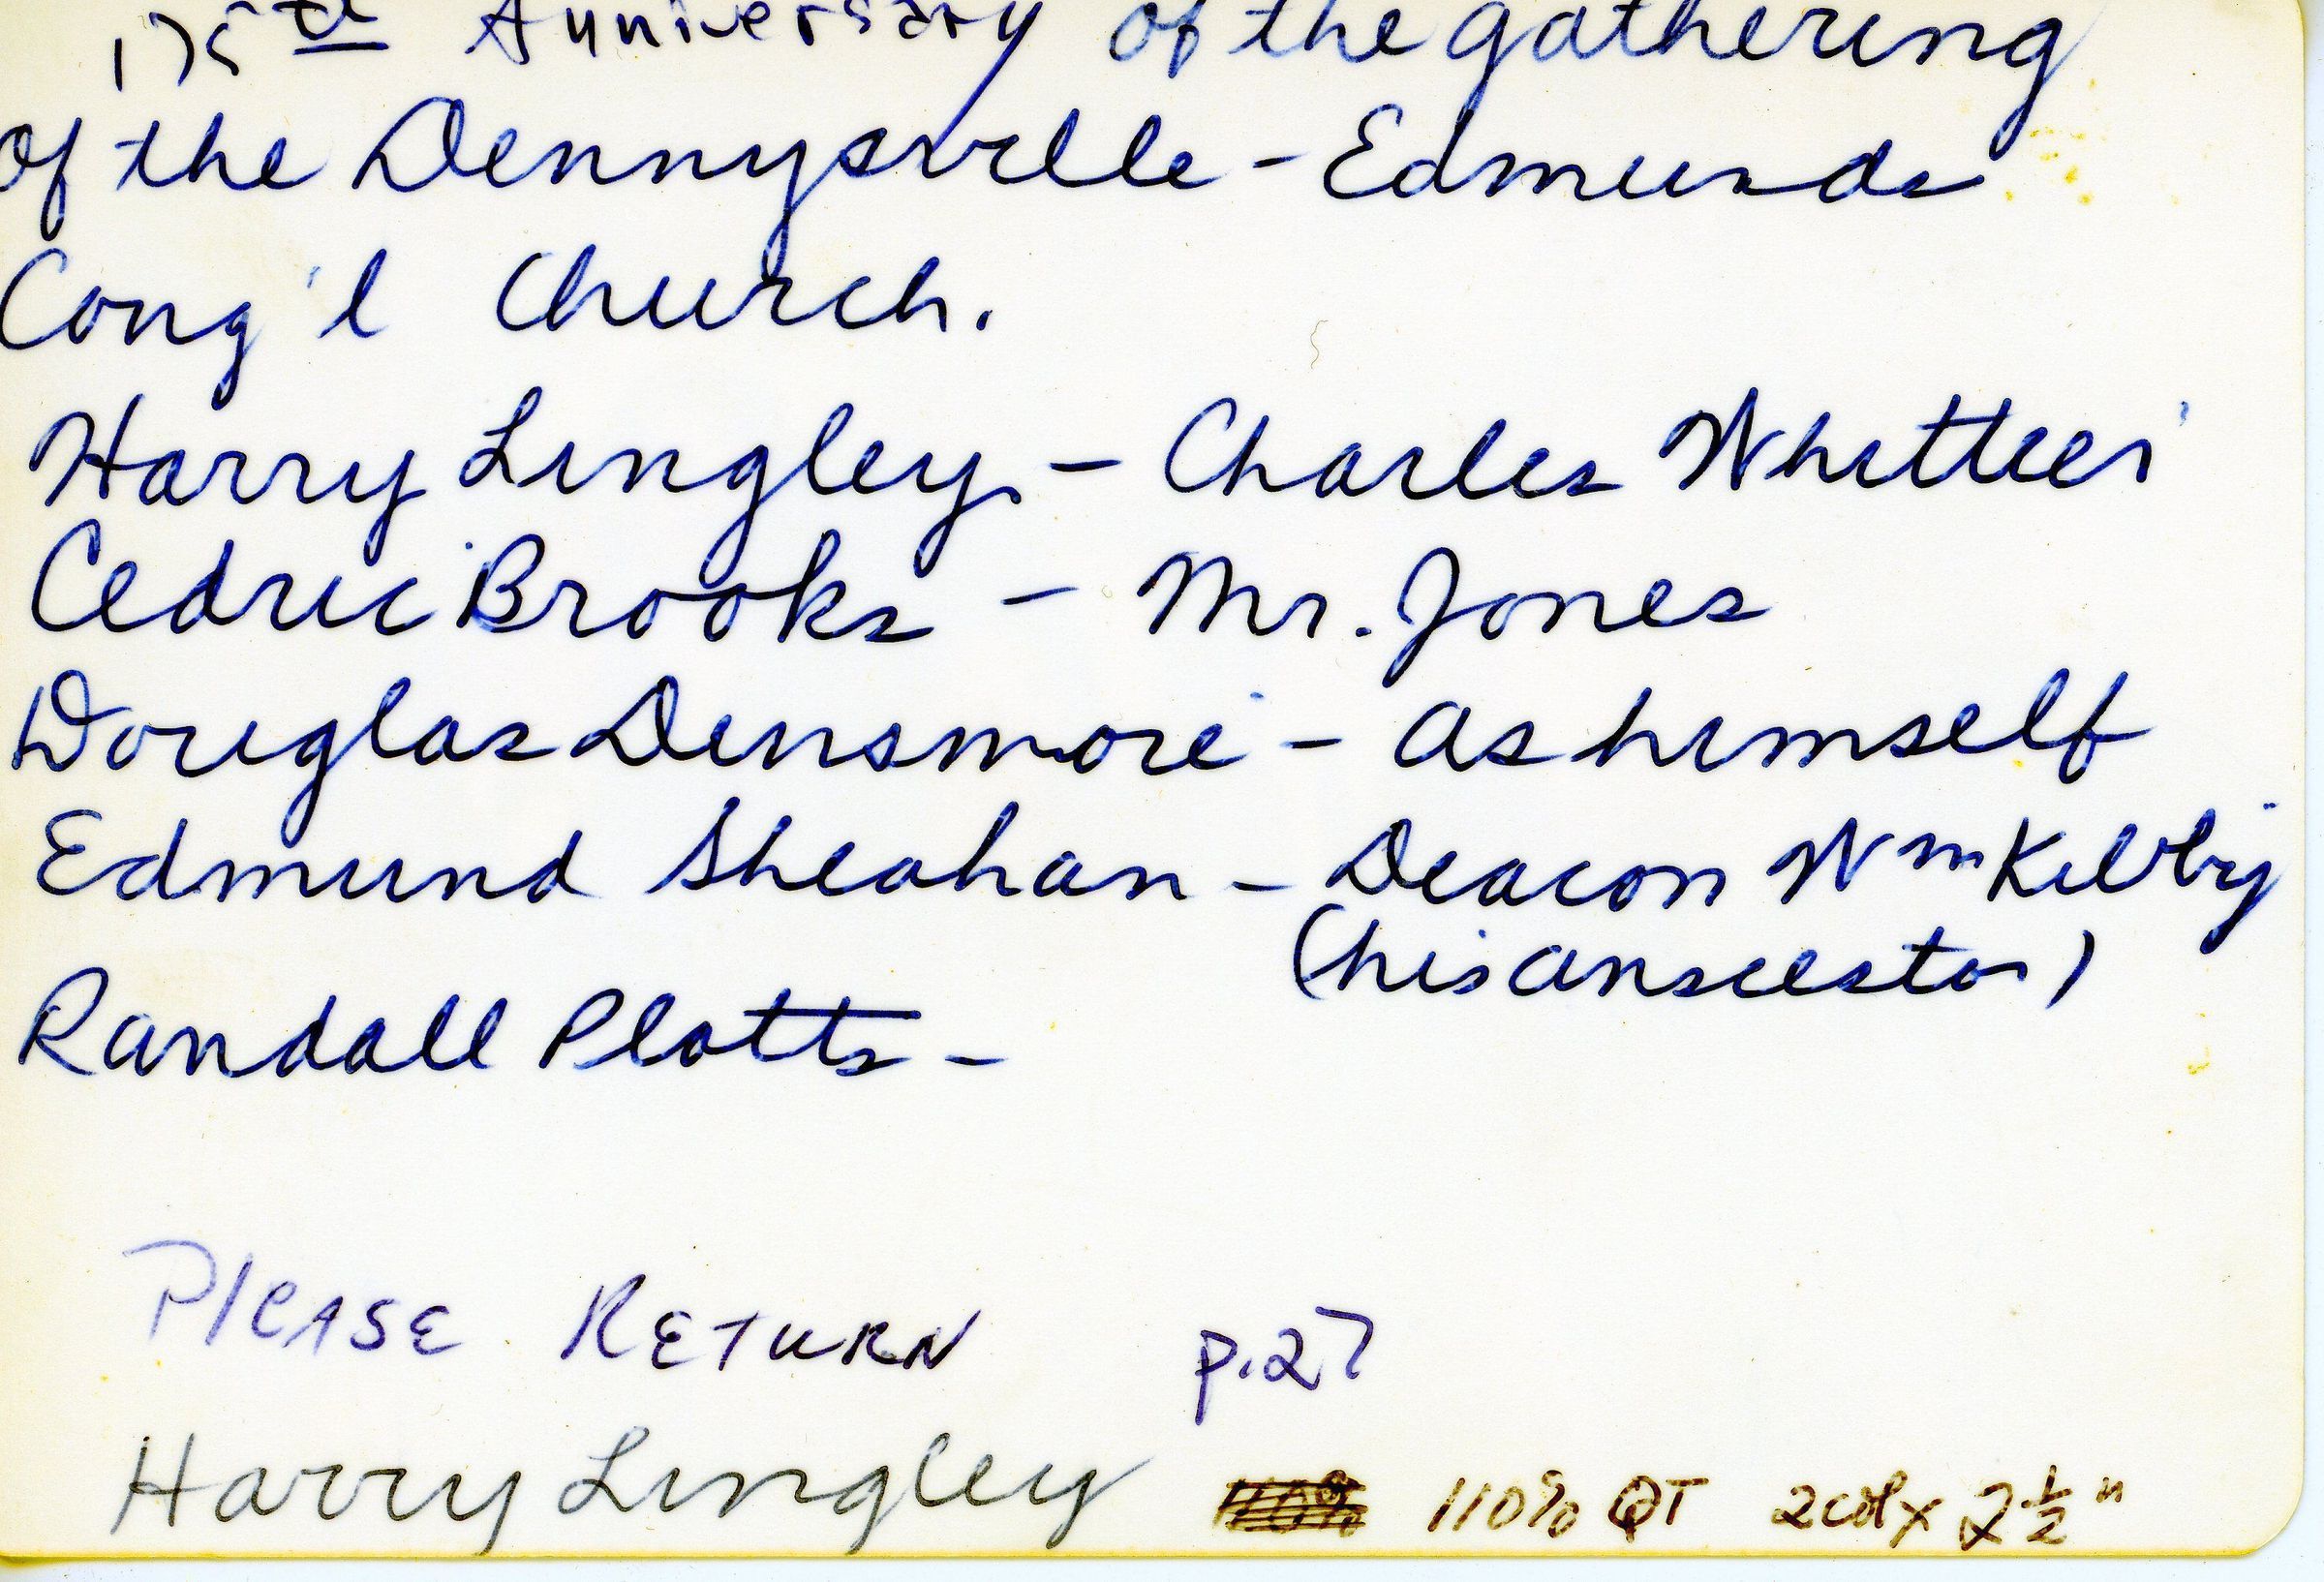 175th Anniversary of the gathering
of the Dennysville - Edmunds
Cong'l Church.
Harry Lingley - Charles Whittier
Cedric Brooks - Mr. Jones
Douglas Densmore - as himself
Edmund Sheahan - Deacon Wm Kilby
(his anscestor)
Randall Platts -
PLEASE RETURN
p. 27
Harry Lingley
110% 110% QT 2col x 2 1/2"